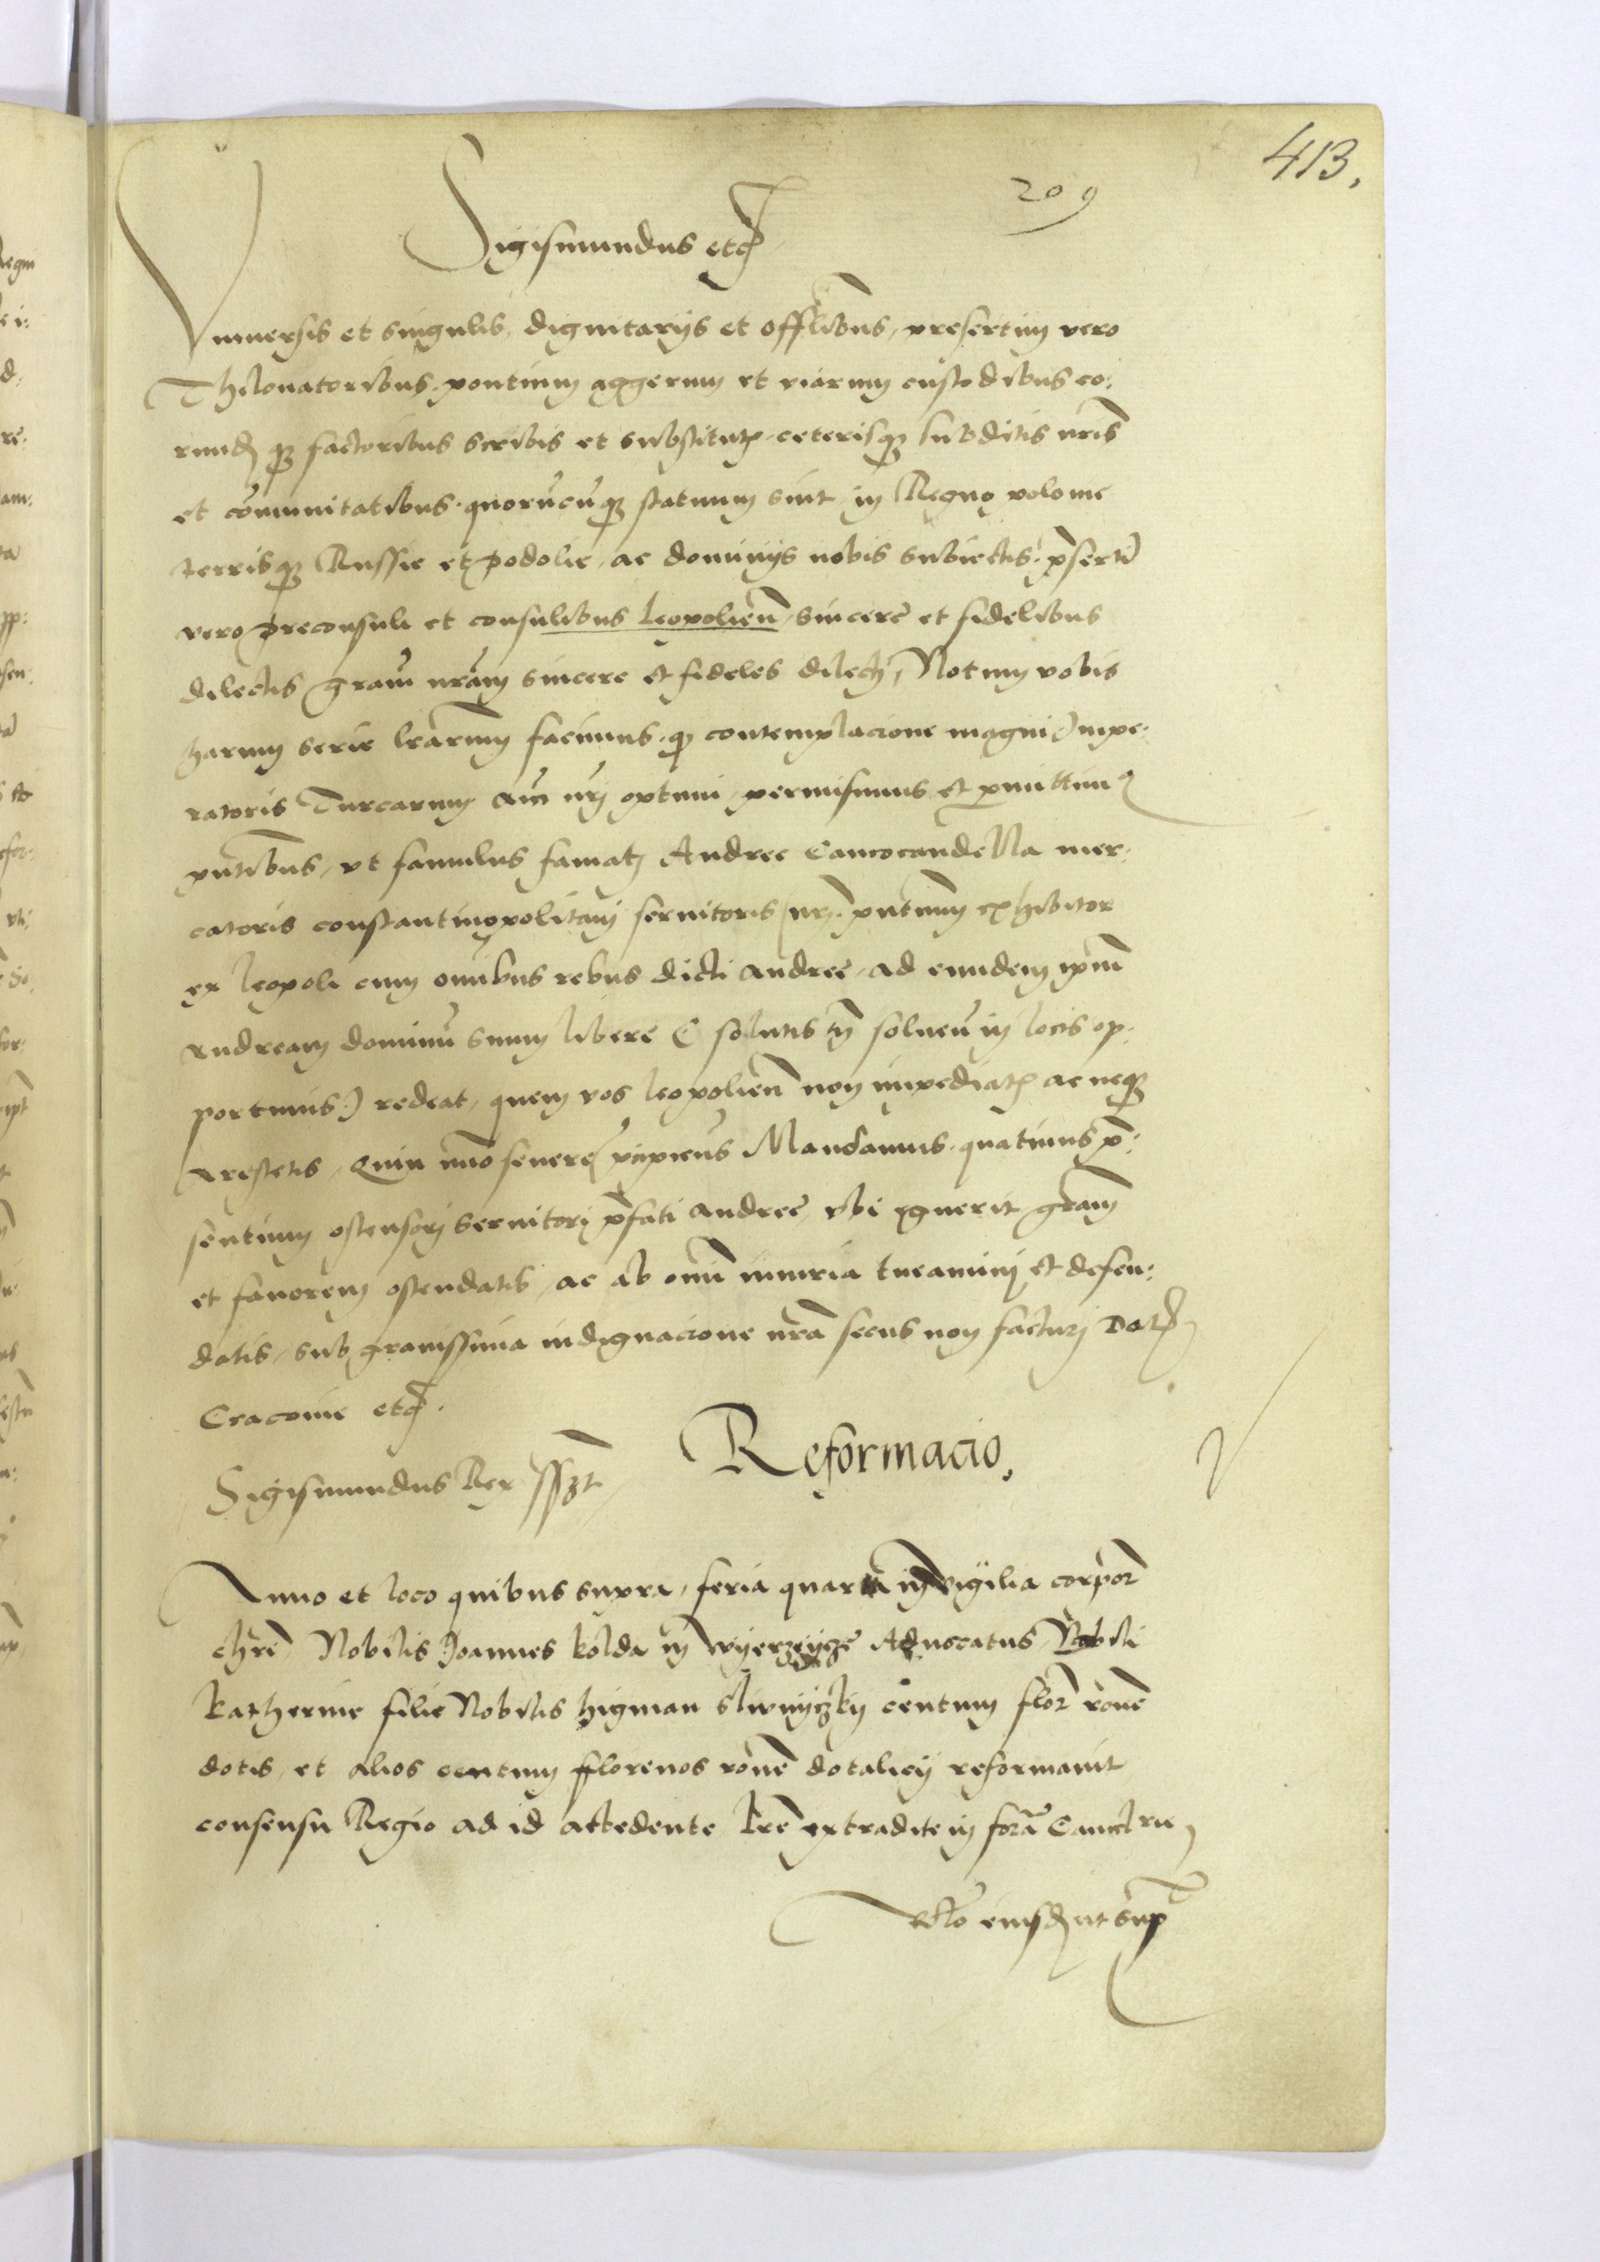 413.
209
Sigismundus etc
Universis et singulis dignitarijs et offlibus, presertim vero
Thelonatoribus pontium aggerum et viarum custodibus eo:
rundem que factoribus scribis et substitutis ceterisque subditis nris
et comunitatibus quorucuque statuum sint in Regno polonie
terrisque Russie et podolie, ac dominijs nobis subiectis, pserti
vero preconsuli et consulibus Leopolien, sincere et fidelibus
dilectis gram nram sincere et fideles dilecti, Notum vobis
harum serie lrarum facimus, quod contemplacione magni Impe:
ratoris Turcarum amici nri optimi, permisimus et permittimus
pntibus, ut famulus famati Andree Cancocandella mer:
catoris constantinopolitani servitoris nri, pntium exhibitor
ex leopoli cum omnibus rebus dicti andree, ad eundem ipsum
Andream dominu suum libere (solutis tn solven in locis op:
portunis) redeat, quem vos leopolien non impediatis ac neque
arestetis, Quin imo severe pcipietes Mandamus, quatinus pre:
sentium ostensori servitori pfati andree, ubi eguerit gram
et favorem ostendatis, ac ab omni iniuria tueamini et defen:
datis, sub gravissima indignacione nra secus non facturi Dat
Cracovie etc.
Sigismundus Rex sszt
Reformacio,
Anno et loco quibus supra, feria quarta in vigilia corpor
chri, Nobilis Joannes kolda in Advocatus Nobili
katherine filie Nobilis centum flor rone
dotis, et alios centum florenos rone dotalicij reformavit
consensu Regio ad id accedente lre extradite in forma Cancelrie
Rlo eiusdem ut supra